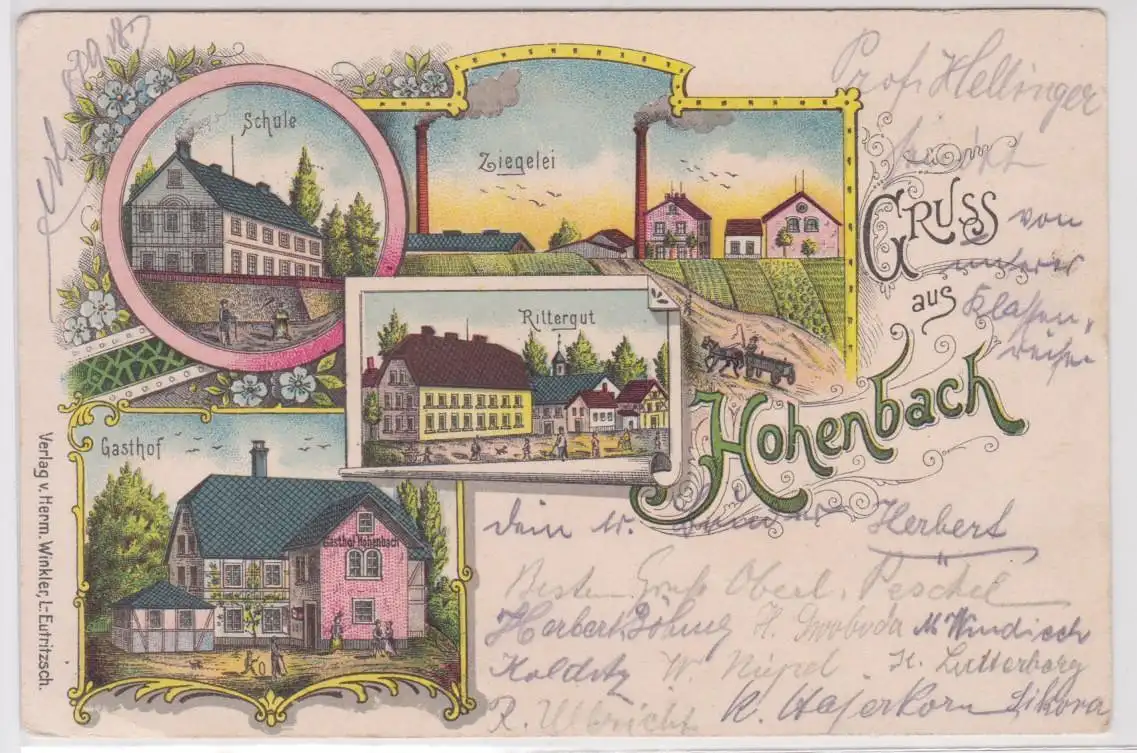 Schule
Ziegelei
Rittergut
Gasthof
Gasthof Hohenbach
Gruss
aus
Hohenbach
Verlag v. Herm. Winkler, L.-Eutritzsch.
Prof. Hellinger
von
unserer
Klassen-
reise
Dein lb. Herbert
Besten Gruß Oberl. Peschel
Herbert Böhmig H. Swoboda M. Windisch
Kolditz W. Nippel H. Lutterberg
R. Ulbricht K. Haferkorn Sikora